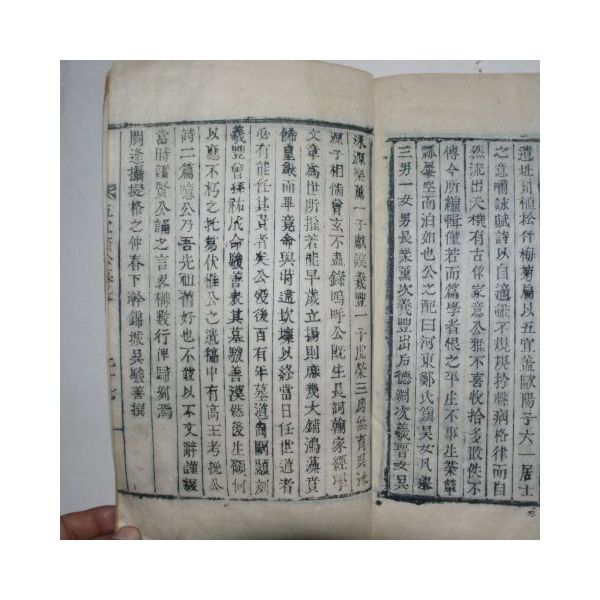 遺址列植松竹梅菊扁以五宜盖歐陽子六一居士
之意嘯詠賦詩以自適雖不規規於聲病格律而自
然流出天機有古作家意公雅不善收拾多散佚不
傳今所編輯僅若而篇學者根之平生不事生業簞
瓢屢空而泊如也公之配曰河東鄭氏鎮昊女凡
三男一女男長榮薰次義豐出后德淵次義會女吳
淶源榮薰一子獻謨義豐一子虎榮三房無育吳淶
源子相儒曾玄不盡錄嗚呼公旣生長詞翰家經學
文章爲世所推若能早歲立揚則庶幾大鋪鴻藻賁
飾皇猷而畢竟命與時違坎壈以經當日任世道者
必有任其責者矣公歿後百有年墓道尙闕顯刻
義豐曾孫祐 命駿善表其墓駿善謨然後生顧何
以應不朽之托焉伏惟公之遺稿中有高王考挽公
詩二篇噫公乃吾先祖舊好也不敢以不文辭謹掇
當時諸賢公誦之言畧稱數行俾歸刻焉
閼逢攝提格之仲春下澣錦城吳駿善撰